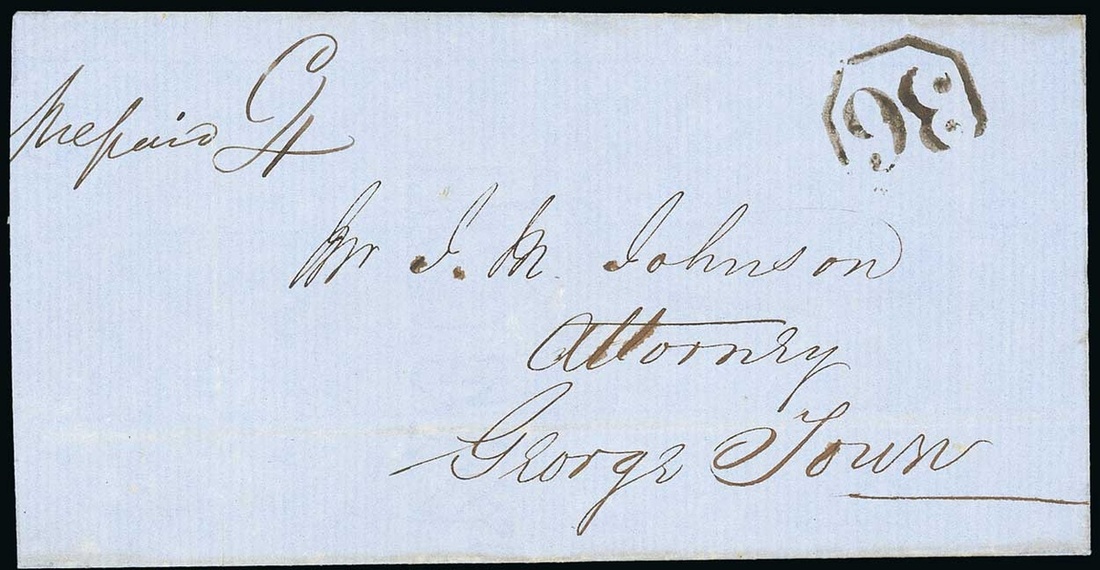 Prepaid 4
Mr J. M. Johnson
Attorney
George Town